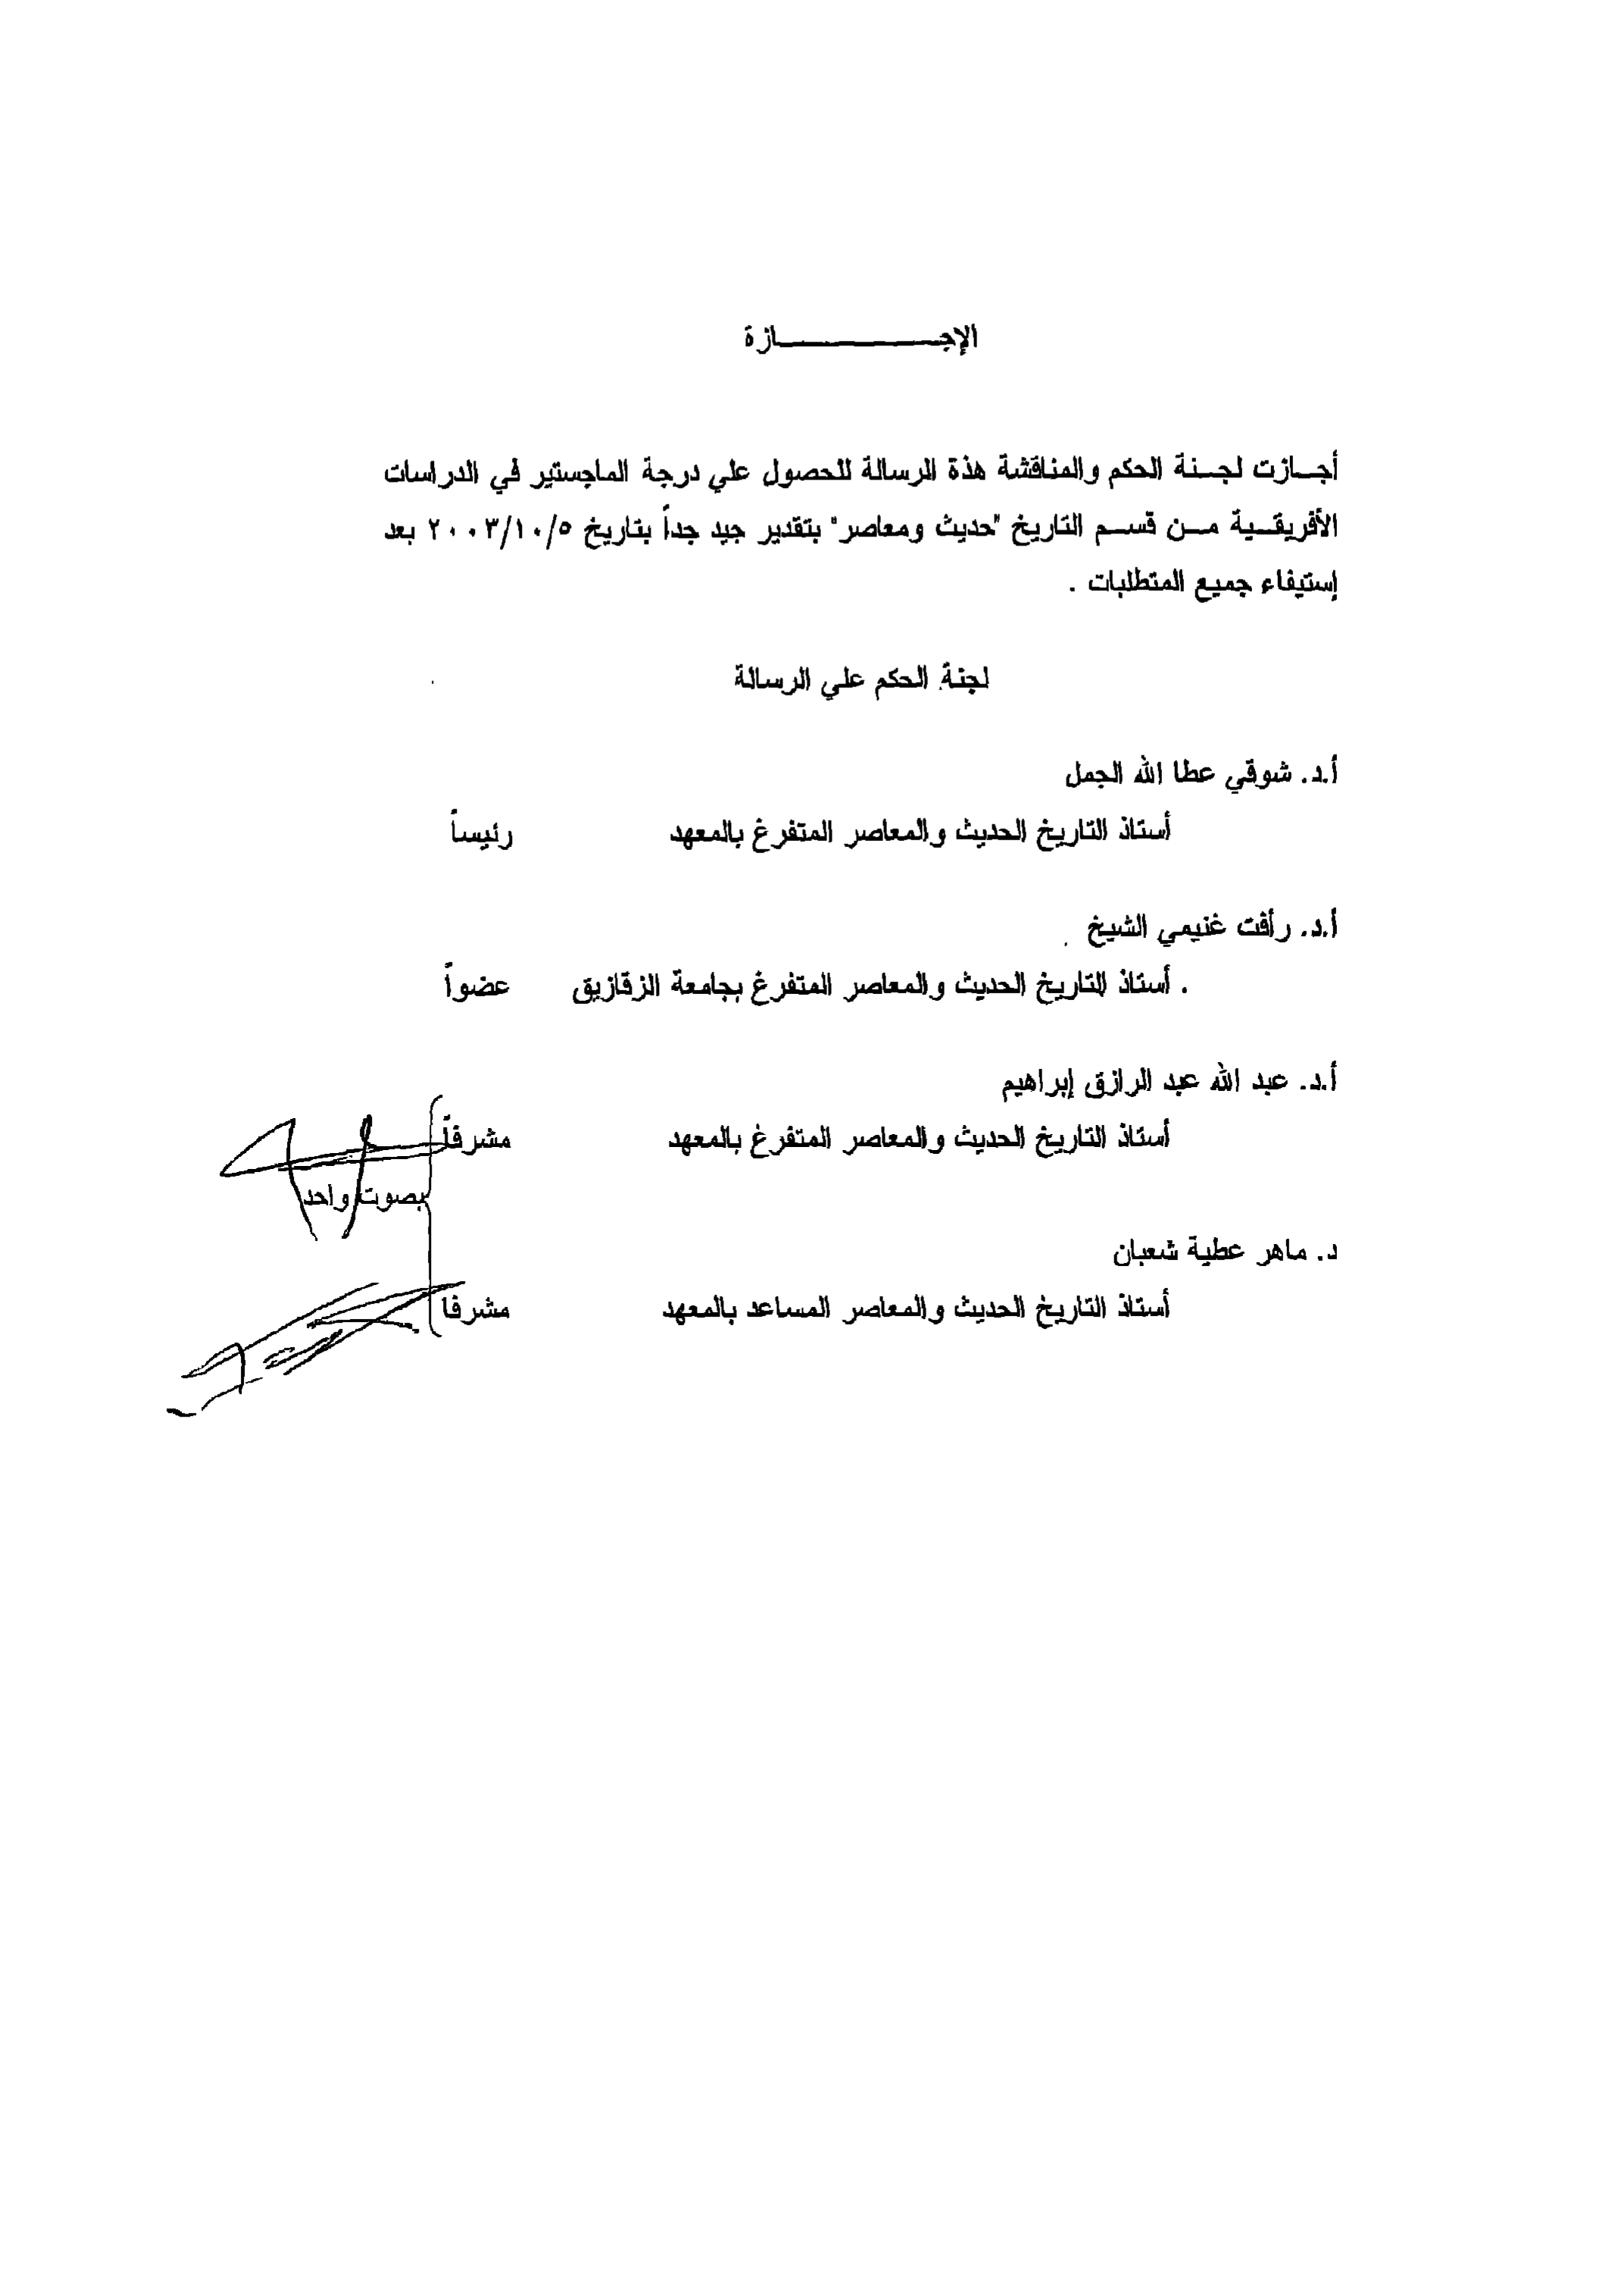 الإجــــــــــازة
أجــازت لجــنة الحكم والمناقشة هذة الرسالة للحصول علي درجة الماجستير في الدراسات
الأفريقــية مــن قســم التاريخ "حديث ومعاصر" بتقدير جيد جداً بتاريخ ٢٠٠٣/١٠/٥ بعد
إستيفاء جميع المتطلبات .
لجنة الحكم علي الرسالة
أ.د. شوقي عطا الله الجمل
أستاذ التاريخ الحديث والمعاصر المتفرغ بالمعهد رئيساً
أ.د. رأفت غنيمي الشيخ
أستاذ التاريخ الحديث والمعاصر المتفرغ بجامعة الزقازيق عضواً
أ.د. عبد الله عبد الرازق إبراهيم
أستاذ التاريخ الحديث والمعاصر المتفرغ بالمعهد مشرفاً
بصوت واحد
د. ماهر عطية شعبان
أستاذ التاريخ الحديث والمعاصر المساعد بالمعهد مشرفا